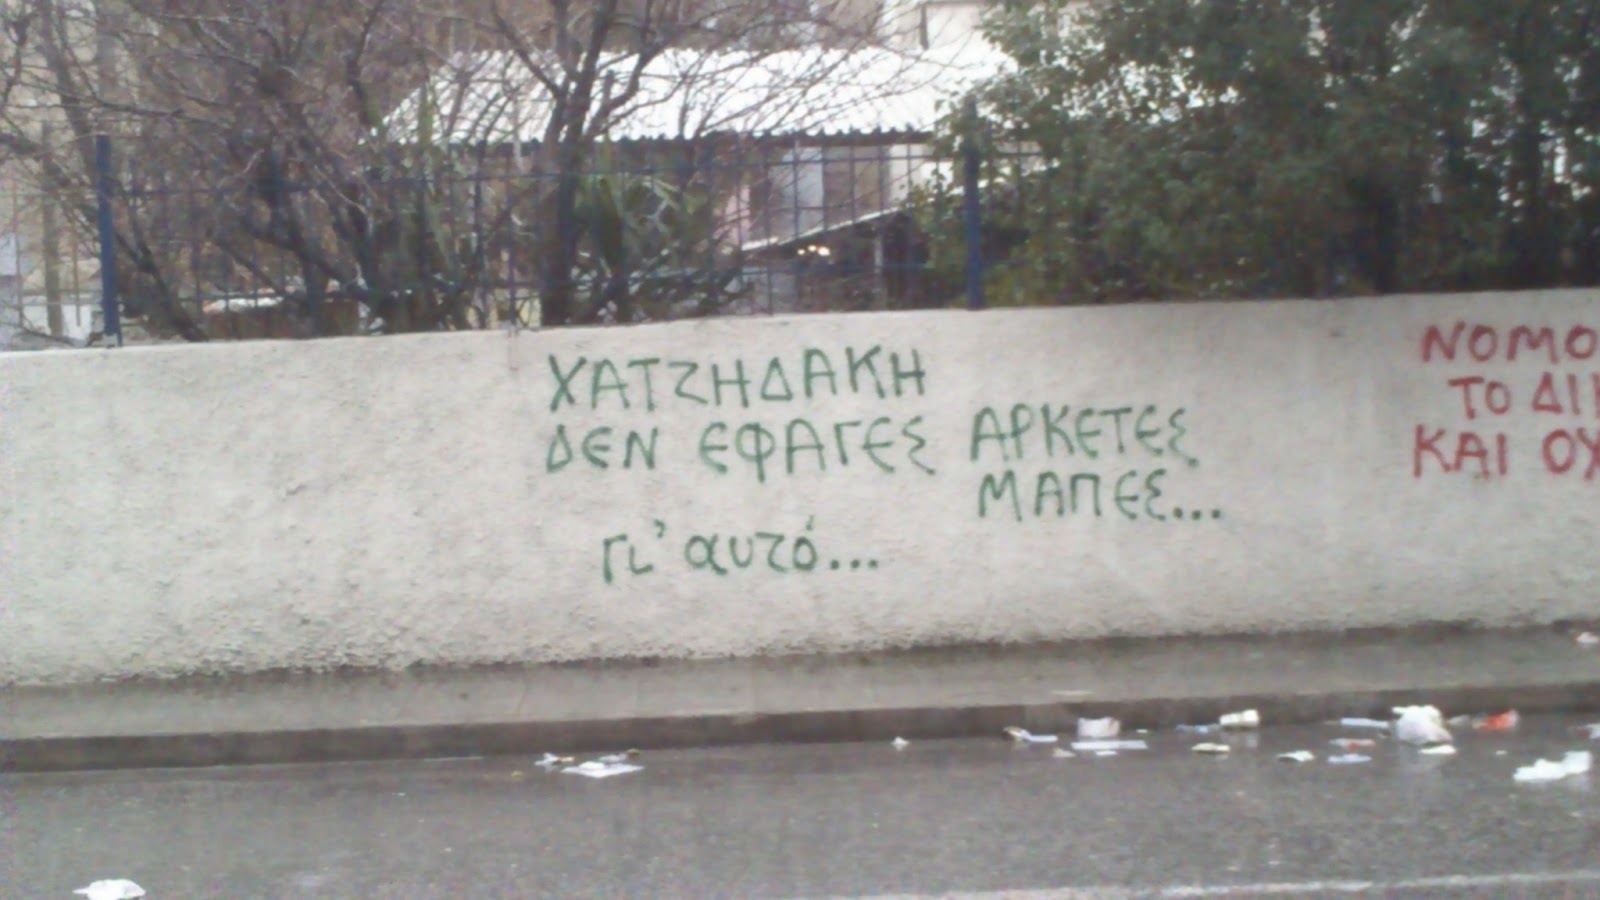 ΧΑΤΖΗΔΑΚΗ
ΔΕΝ ΕΦΑΓΕΣ ΑΡΚΕΤΕΣ
ΜΑΠΕΣ...
Γι' αυτό...
ΝΟΜΟ
ΤΟ ΔΙ
ΚΑΙ ΟΧ